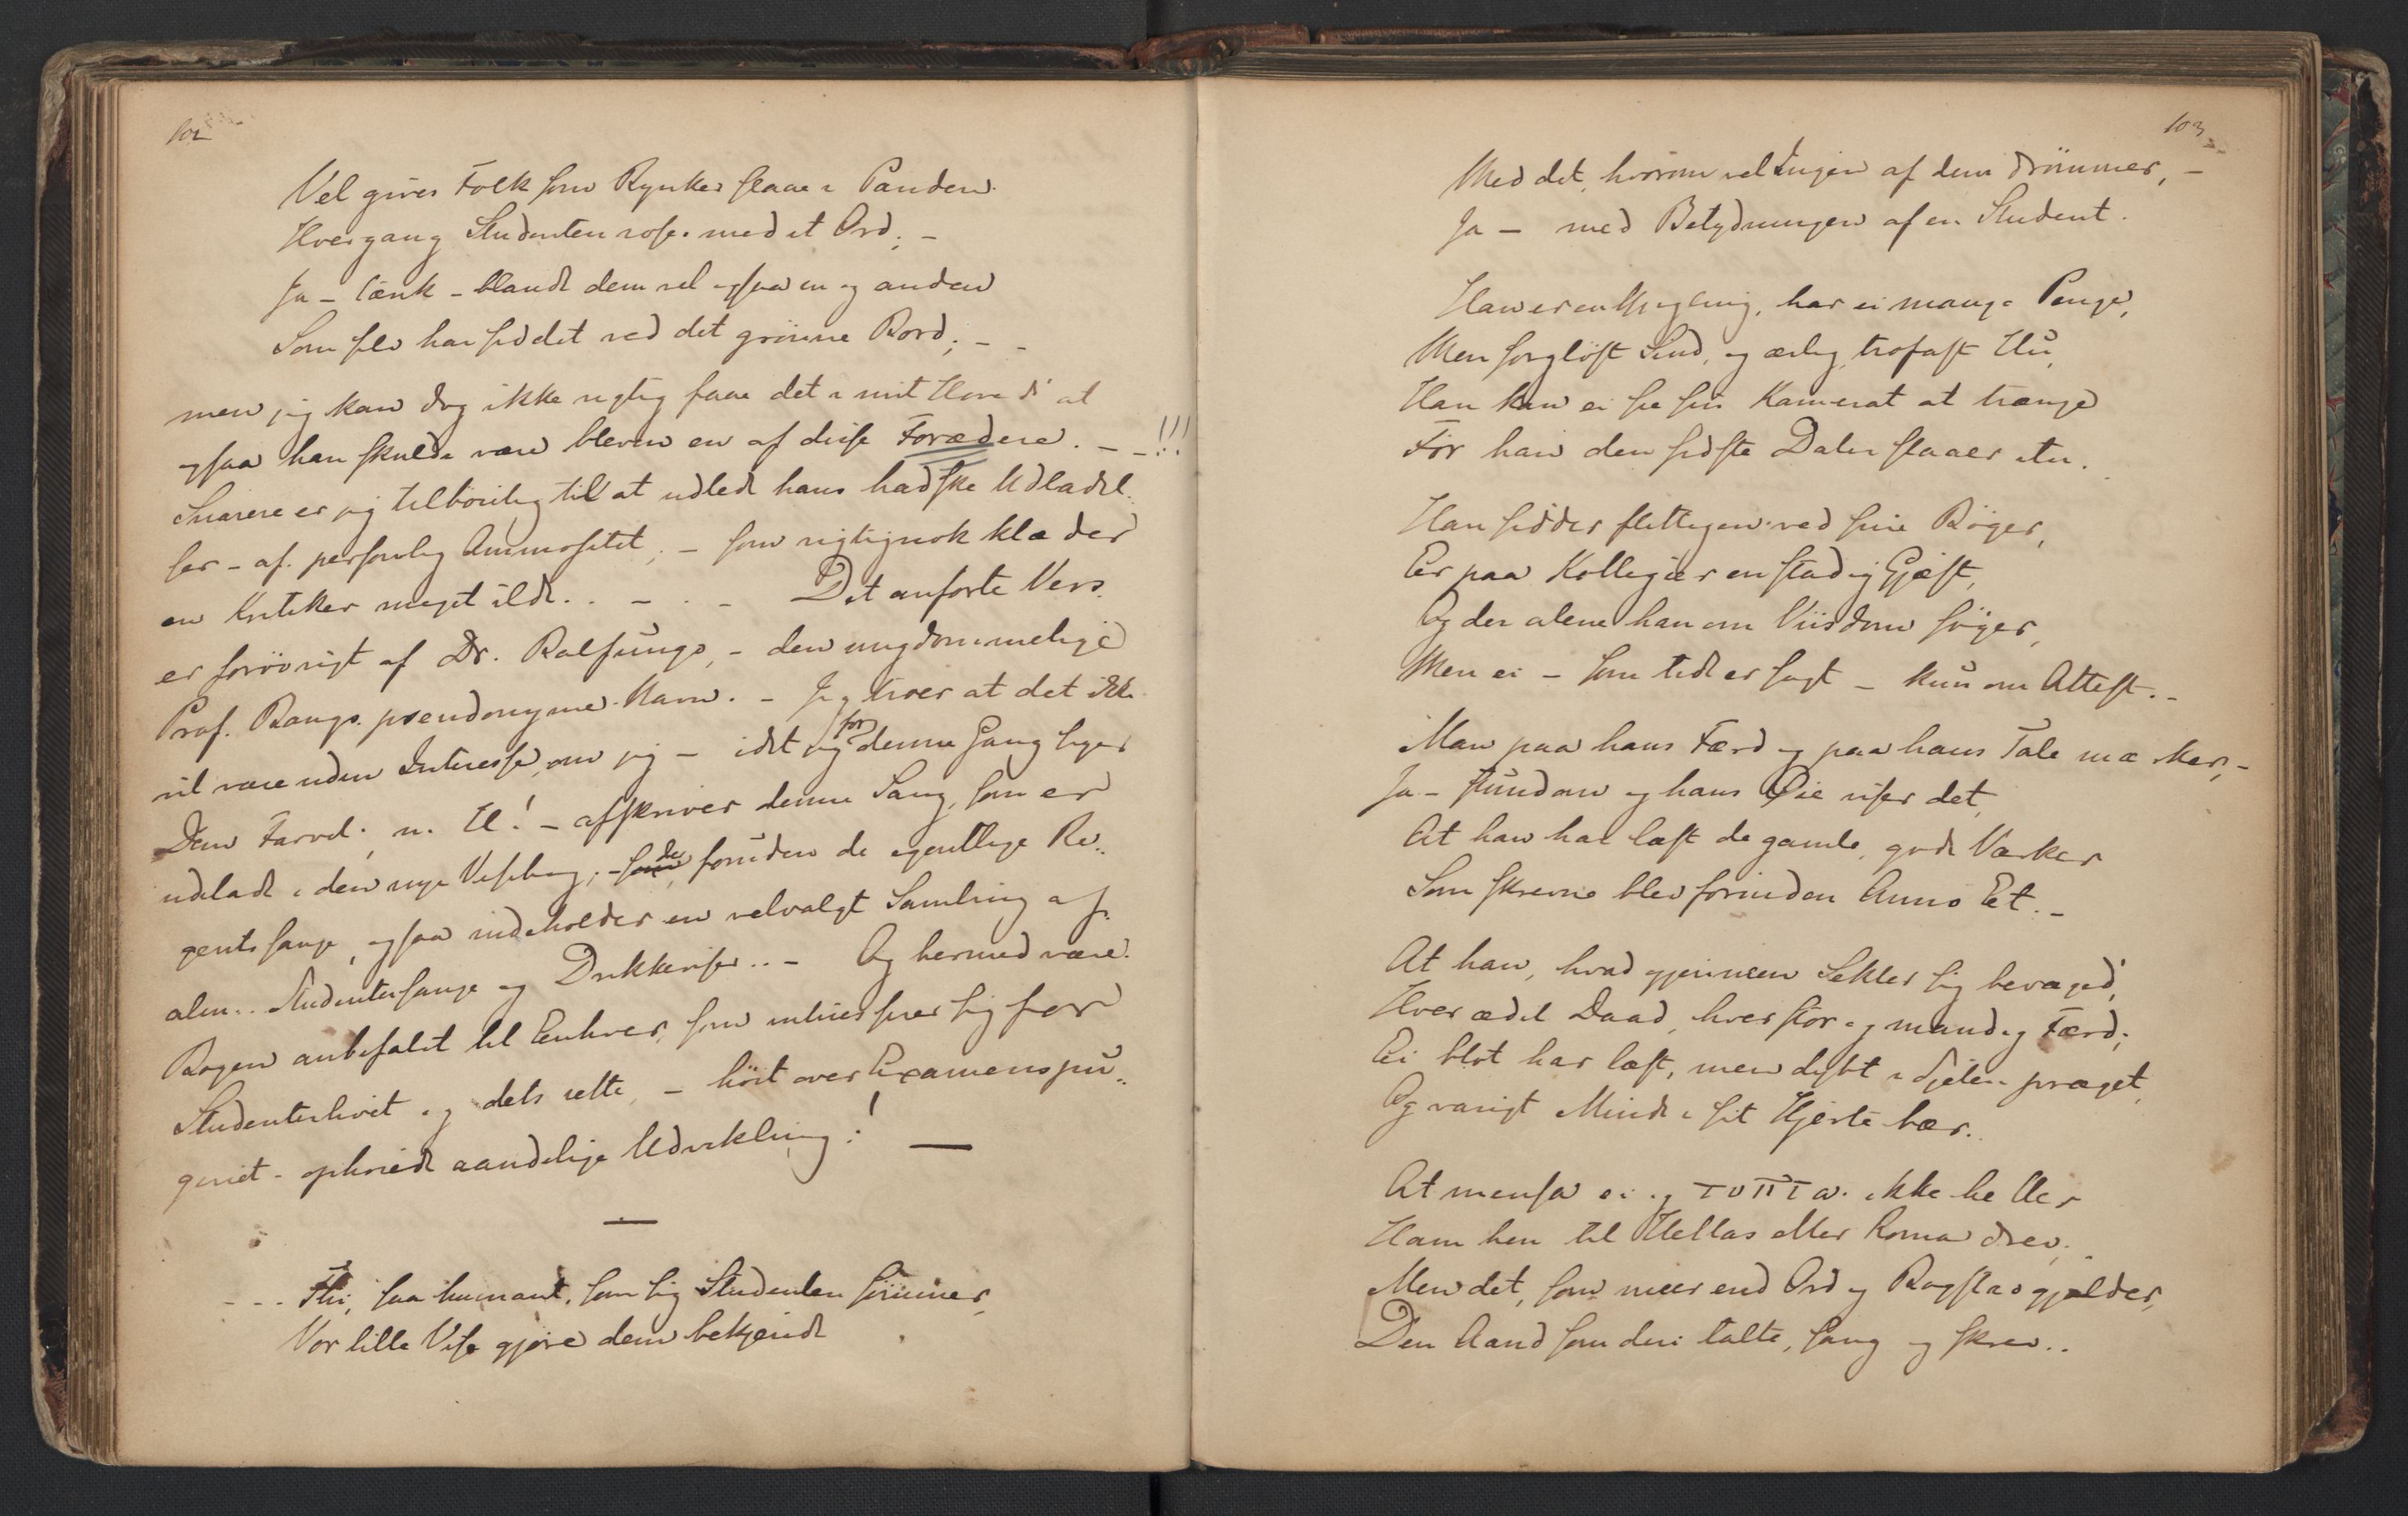 102
Vel gives Folk som Rynker slaae i Panden
Hvergang Studenten roses med et Ord; –
Ja – tænk – blandt dem vel ogsaa en og anden
Som selv har siddet ved det grönne Bord; – –
men jeg kan dog ikke rigtig faae det i mit Hoved at
ogsaa han skulde være bleven en af disse Forædere. – – !!!
Snarere er jeg tilböielig til at udlede hans hadske Udladel„
ser – af personlig Animositet; – som rigtignok klæder
en Kritiker meget ilde. . – . – Det anførte Vers
er forövrigt af Dr. Balfungo, – den ungdommelige
Prof. Bangs pseudonyme Navn. – Jeg troer at det ikke
vil være uden Interesse, om jeg – idet jeg for denne Gang siger
Dem Farvel, n. H! – afskriver denne Sang, som er
udeladt i den nye Visebog; – som der foruden de egentlige Re„
gentssange, ogsaa indeholder en velvalgt Samling af
alm.. Studentersange og Drikkeviser.. – Og hermed være
Bogen anbefalet til Enhver, som interesserer sig for
Studenterlivet og dets rette, – höit over Examenspu„
geriet – ophöiede aandelige Udvikling! —
—
– – . Thi, saa humant, som sig Studenten sömmer,
Vor lille Vise gjöre dem bekjendt
103
Med det, hvorom vel Ingen af dem drömmer, –
Ja – med Betydningen af en Student.
Han er en Yngling, har ei mange Penge,
Men sorglöst Sind, og ærlig, trofast Hu,
Han kan ei see sin Kamerat at trænge
För han den sidste Daler slaaer itu.
Han sidder flittigen ved sine Böger,
Er paa Kollegier en stadig Gjæst,
Og der alene han om Viisdom söger,
Men ei – som tidt er sagt – kun om Attest. –
Man paa hans Færd og paa hans Tale mærker, –
Ja – stundom og hans Öie viser det,
At han har læst de gamle, gode Værker
Som skrevne blev forinden Anno Et. –
At han, hvad gjennem Sekler sig bevæged',
Hver ædel Daad, hver stor og mandig Færd;
Ei blot har læst, men dybt i Sjelen præget,
Og varigt Minde i sit Hjerte bær.
At mensa ei og τυπτω ikke heller
Ham hen til Hellas eller Roma drev;
Men det, som meer end Ord og Bogstav gjælder,
Den Aand som deri talte, sang og skrev..